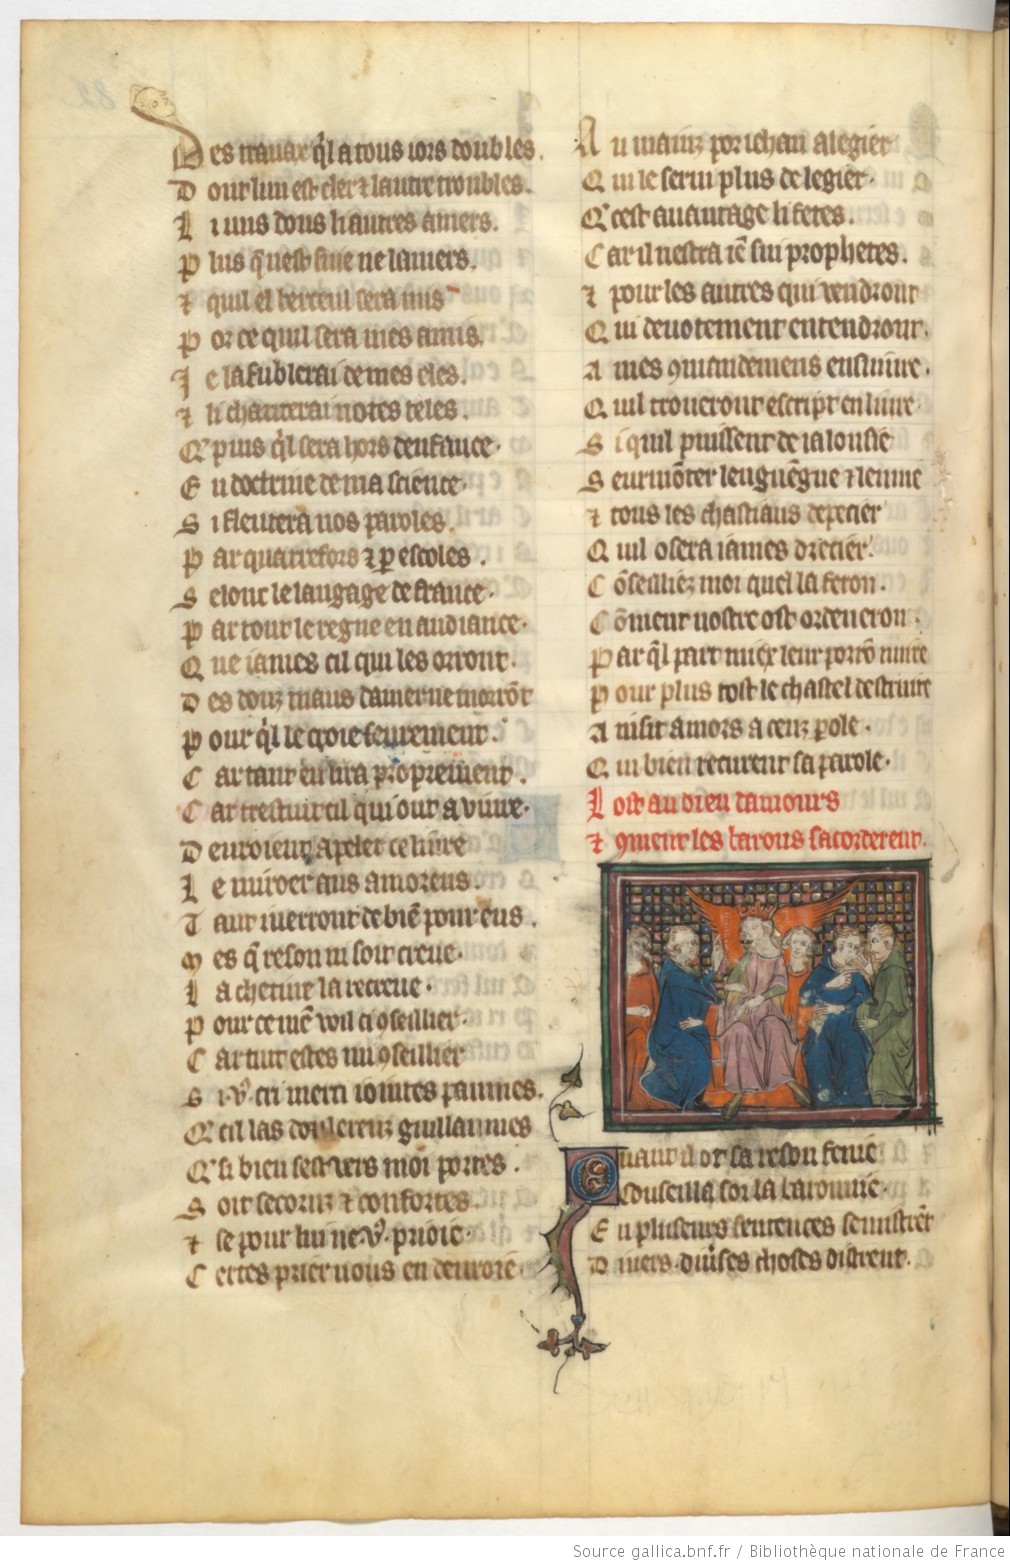 Des travax q̃l a tous iors doubles.
Dont lun est cler ⁊ lautre troubles.
Li uns dous li autres amers.
Plus q̃ nest sine ne la mers.
⁊ quil el berceul sera mis
Por ce quil sera mes amis.
Je lafublerai de mes eles.
⁊ li chanterai notes teles.
Q̃ puis q̃l sera hors denfance.
En doctrine de ma science.
Si fleutera nos paroles.
Par quarrefors ⁊ ꝑ escoles.
Selonc le langage de france.
Par tout le regne en audiance.
Que iames cil qui les orront.
Des douz maus damer ne morrõt
Pour q̃l le croie seurement.
Car tant en lira proprement.
Car trestuit cil qui ont a viure.
Deuroient apeler ce liure
Le miroer aus amoreus.
Tant i uerront de biẽ pour eus.
Mes q̃ reson ni soit creue.
La chetiue la recreue.
Pour ce mẽ voil ci ꝯseillier.
Car tuit estes mi ꝯseillier
Si v̾ cri merci iointes paumes.
Q̃ cil las doulereuz guillaumes
Q̃ si bien sest vers moi portes.
Soit secoruz ⁊ confortes.
⁊ se pour lui ne v̾ prioie.
Certes prier uous en deuroie
Au mainz por iehan alegier
Qui le seriu plus de legier.
Q̃ cest auantage li fetes.
Car il nestra iẽ sui prophetes.
⁊ pour les autres qui vendront
Qui deuotement entendront.
A mes ꝯmandemens ensuiure.
Quil trouerout escript en liure
Si quil puissent de ialousie
Seurmõter lenguẽgne ⁊ lenuie
⁊ tous les chastiaus depecier
Quil osera iames drecier.
Cõseilliez moi quel la feron.
Cõment nostre ost ordeneron.
Par q̃l part miex leur porrõ nuire
Pour plus tost le chastel destruire
Ainsit amors a ceuz ꝑole.
Qui bien recurent sa parole.
Lost au dieu damours
⁊ ꝯment les barons sacorderent.
Quant il ot sa reson fenie
Conseilla soi la baronnie.
En pluseurs sentences se mistrẽt
Diuers diu̾ses choses distrent.
Source gallica.bnf.fr / Bibliothèque nationale de France